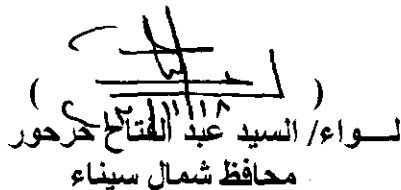 ( )
لـــواء/ السيد عبد الفتاح حرحور
محافظ شمال سيناء